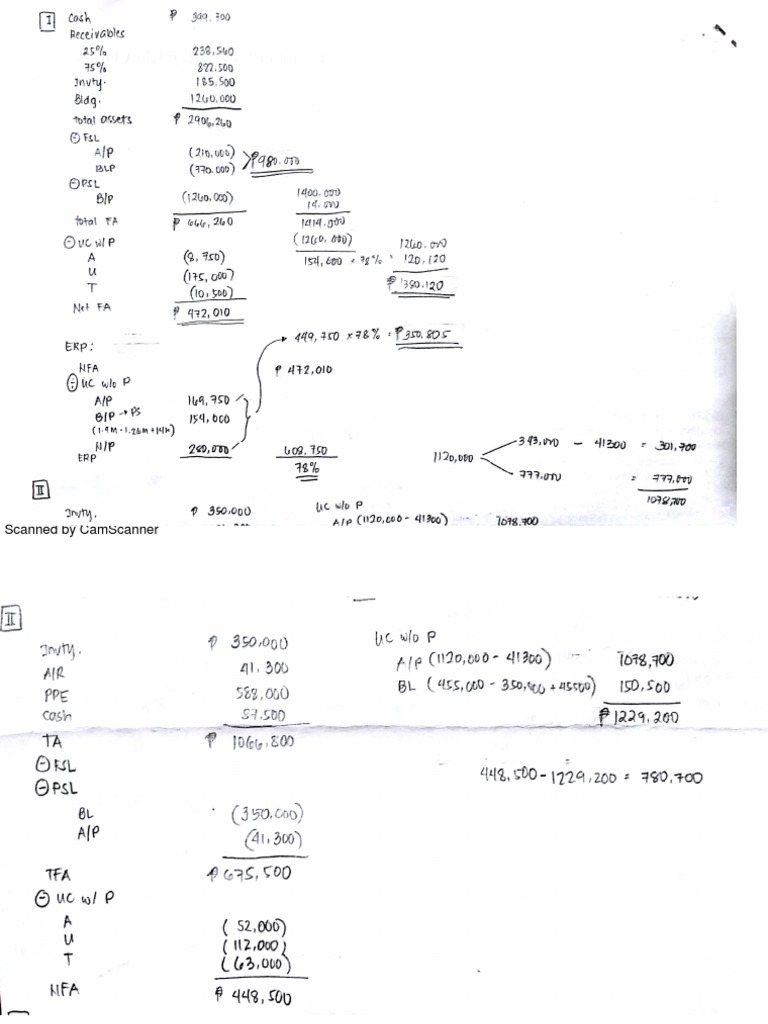 I Cash ₱ 399,700
Receivables
25% 238,560
75% 822,500
Invty. 185,500
Bldg. 1260,000
Total assets ₱ 2906,260
⊖ FSL
A/P (210,000)
BLP (770,000) ₱980,000
⊖ PSL
B/P (1260,000) 1400,000
14,000
Total FA ₱ 666,260 1414,000
⊖ UC w/ P (1260,000) 1260,000
A (8,750) 154,000 × 78% = 120,120
U (175,000) ₱ 1380,120
T (10,500)
Net FA ₱ 472,010
ERP: 449,750 × 78% = ₱350,805
NFA ₱ 472,010
UC w/o P
A/P 169,750
B/P → PS 154,000
(1.4M - 1.26M + 14k)
N/P 280,000 603,750
ERP 78%
1120,000
343,000 - 41300 = 301,700
777,000 = 777,000
1078,700
II
Invty. ₱ 350,000 UC w/o P
A/P (1120,000 - 41300) 1078,700
Scanned by CamScanner
II
Invty. ₱ 350,000 UC w/o P
A/R 41,300 A/P (1120,000 - 41300) 1078,700
PPE 588,000 BL (455,000 - 350,000 + 45500) 150,500
Cash 87,500 ₱ 1229,200
TA ₱ 1066,800
⊖ FSL 448,500 - 1229,200 = 780,700
⊖ PSL
BL (350,000)
A/P (41,300)
TFA ₱ 675,500
⊖ UC w/ P
A (52,000)
U (112,000)
T (63,000)
NFA ₱ 448,500